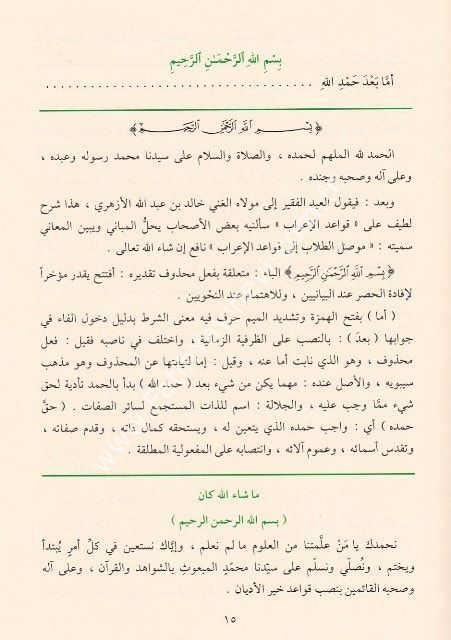 بِسْمِ اللهِ ٱلرَّحْمَـٰنِ ٱلرَّحِيمِ
أمَّا بَعْدَ حَمْدِ اللهِ . . . . . . . . . . . . . . . . . . . . . . . . . . . . . . . . . . .
﴿ بِسْمِ اللهِ الرَّحْمَنِ الرَّحِيمِ ﴾
الحمد لله الملهم لحمده ، والصلاة والسلام على سيدنا محمد رسوله وعبده ،
وعلى آله وصحبه وجنده .
وبعد : فيقول العبد الفقير إلى مولاه الغني خالد بن عبد الله الأزهري ، هذا شرح
لطيف على « قواعد الإعراب » سألنيه بعض الأصحاب يحلُّ المباني ويبين المعاني
سميته : « موصل الطلاب إلى قواعد الإعراب » نافع إن شاء الله تعالى .
﴿ بِسْمِ اللهِ الرَّحْمَنِ الرَّحِيمِ ﴾ الباء : متعلقة بفعل محذوف تقديره : أفتتح يقدر مؤخراً
لإفادة الحصر عند البيانيين ، وللاهتمام عند النحْويين .
( أما ) بفتح الهمزة وتشديد الميم حرف فيه معنى الشرط بدليل دخول الفاء في
جوابها ( بعدَ ) : بالنصب على الظرفية الزمانية ، واختلف في ناصبه فقيل : فعل
محذوف ، وهو الذي نابت أما عنه ، وقيل : إما لنيابتها عن المحذوف وهو مذهب
سيبويه ، والأصل عنده : مهما يكن من شيء بعد ( حمد الله ) بدأ بالحمد تأدية لحق
شيء ممَّا وجب عليه ، والجلالة : اسم للذات المستجمع لسائر الصفات . ( حقَّ
حمده ) أي : واجب حمده الذي يتعين له ، ويستحقه كمال ذاته ، وقدم صفاته ،
وتقدس أسمائه ، وعموم آلائه ، وانتصابه على المفعولية المطلقة .
ما شاء الله كان
( بسم الله الرحمن الرحيم )
نحمدك يا مَنْ علَّمتنا من العلوم ما لم نعلم ، وإيَّاك نستعين في كلِّ أمرٍ يُبتدأ
ويختم ، ونُصلِّي ونسلّم على سيِّدنا محمَّدٍ المبعوثِ بالشواهد والقرآن ، وعلى آله
وصحبه القائمين بنصب قواعد خير الأديان .
١٥